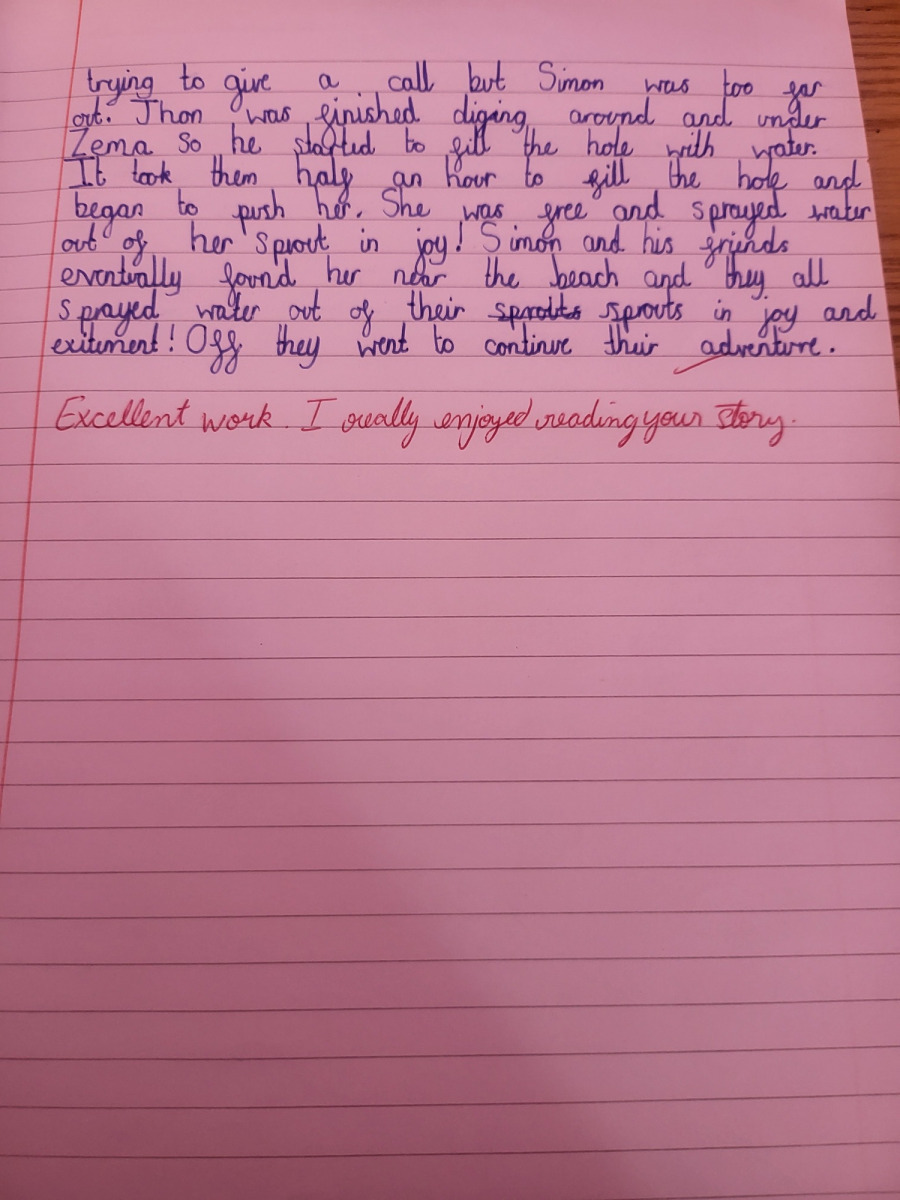 trying to give a call but Simon was too far
out. Jhon was finished diging around and under
Zema So he started to fill the hole with water.
It took them half an hour to fill the hole and
began to push her. She was free and sprayed water
out of her sprout in joy! Simon and his friends
eventually found her near the beach and they all
sprayed water out of their sproits sprouts in joy and
exitument! Off they went to continue their adventure.
Excellent work. I really enjoyed reading your story.